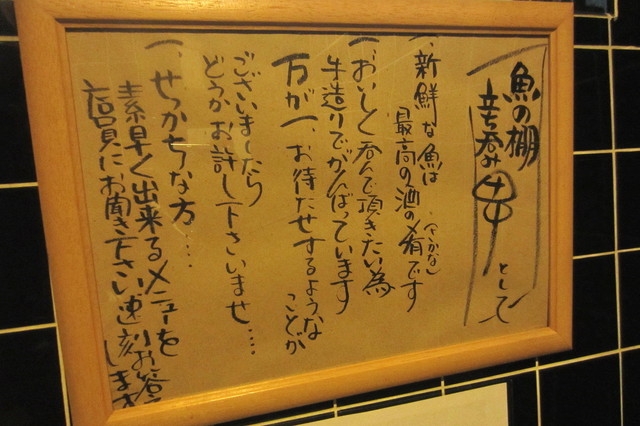 魚の棚
立ち呑み
として
一、新鮮な魚は
最高の酒の肴です
(さかな)
一、おいしく呑んで頂きたい為
手造りでがんばっています
万が一、お待たせするような
ことが
ございましたら
どうかお許し下さいませ…
一、せっかちな方…
素早く出来るメニューを
店員にお聞き下さい速刻お答
します